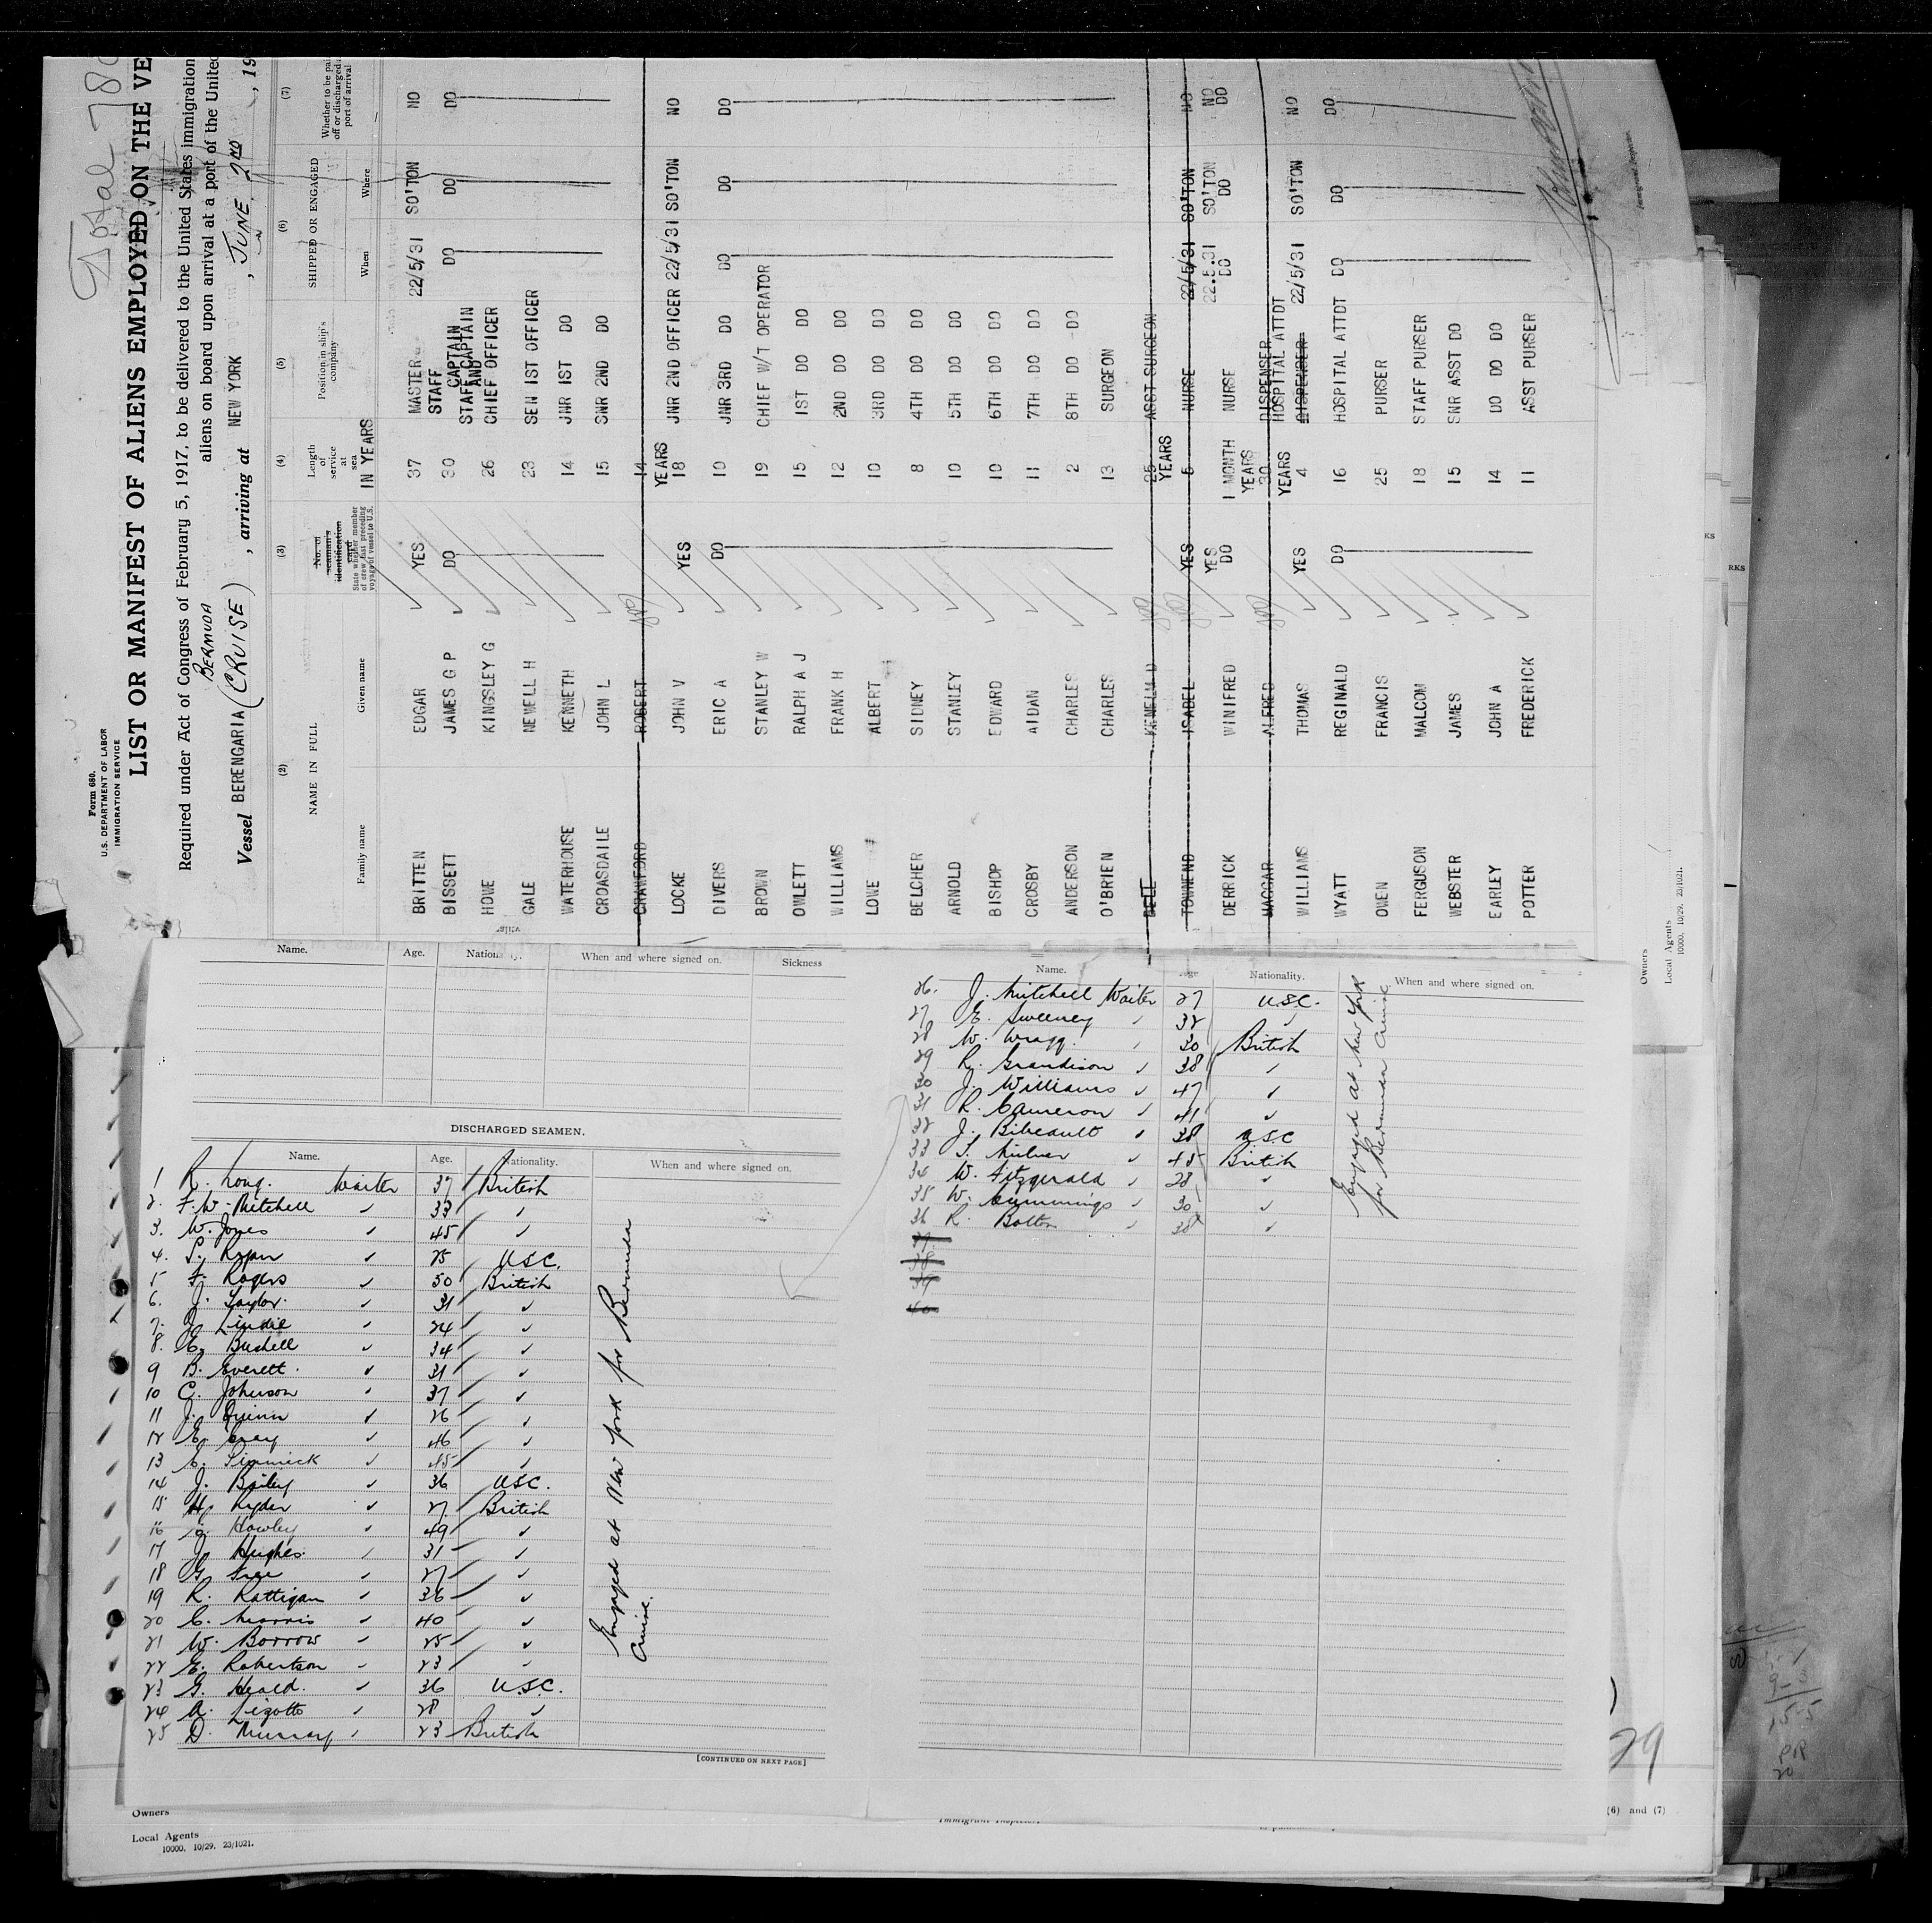 Total 78
Form 680.
U.S. DEPARTMENT OF LABOR
IMMIGRATION SERVICE
LIST OR MANIFEST OF ALIENS EMPLOYED ON THE VE
Required under Act of Congress of February 5, 1917, to be delivered to the United States immigration
aliens on board upon arrival at a port of the United
BERMUDA
Vessel BERENGARIA (CRUISE), arriving at NEW YORK, JUNE 2ND, 19
(2) (3) (4) (5) (6) (7)
NAME IN FULL
Family name Given name
No. of seaman's identification card
State whether member of crew last preceding voyage of vessel to U.S.
Length of service at sea
IN YEARS
Position in ship's company
SHIPPED OR ENGAGED
When Where
Whether to be pai
off or discharged
port of arrival
BRITTEN EDGAR YES 37 MASTER 22/5/31 SO'TON NO
BISSETT JAMES G P DO 30 STAFF CAPTAIN DO DO DO
HOWE KINGSLEY G 26 STAFF CAPTAIN AND CHIEF OFFICER
GALE NEWELL H 23 SEN 1ST OFFICER
WATERHOUSE KENNETH 14 JNR 1ST DO
CROASDAILE JOHN L 15 SNR 2ND DO
CRAWFORD ROBERT 14
LOCKE JOHN V YES YEARS 18 JNR 2ND OFFICER 22/5/31 SO'TON NO
DIVERS ERIC A DO 10 JNR 3RD DO DO DO DO
BROWN STANLEY W 19 CHIEF W/T OPERATOR
OWLETT RALPH A J 15 1ST DO DO
WILLIAMS FRANK H 12 2ND DO DO
LOWE ALBERT 10 3RD DO DO
BELCHER SIDNEY 8 4TH DO DO
ARNOLD STANLEY 10 5TH DO DO
BISHOP EDWARD 10 6TH DO DO
CROSBY AIDAN 11 7TH DO DO
ANDERSON CHARLES 2 8TH DO DO
O'BRIEN CHARLES 13 SURGEON
BELL KENELM D 25 ASST SURGEON
TOWNEND ISABEL YES YEARS 5 NURSE 22/5/31 SO'TON NO
DERRICK WINIFRED YES DO 1 MONTH NURSE 22.5.31 DO SO'TON DO NO DO
HAGGAR ALFRED YEARS 30 DISPENSER
WILLIAMS THOMAS YES YEARS 4 HOSPITAL ATTDT DISPENSER 22/5/31 SO'TON NO
WYATT REGINALD DO 16 HOSPITAL ATTDT DO DO DO
OWEN FRANCIS 25 PURSER
FERGUSON MALCOM 18 STAFF PURSER
WEBSTER JAMES 15 SNR ASST DO
EARLEY JOHN A 14 DO DO DO
POTTER FREDERICK 11 ASST PURSER
Immigrant Inspector.
Owners
Local Agents
10000. 10/29. 23/1021.
Name. Age. Nationality. When and where signed on. Sickness
DISCHARGED SEAMEN.
Name. Age. Nationality. When and where signed on.
1 R. Long. Waiter 37 British
2. F. W. Mitchell " 33 "
3. W. Jones " 45 "
4. P. Ryan " 25 U.S.C.
5 F. Rogers " 50 British
6. J. Taylor. " 31 "
7. J. Lindie " 24 "
8. E. Bushell " 34 "
9 B. Everett. " 31 "
10 C. Johnson " 37 "
11 J. Quinn " 26 "
12 E. Gray " 46 "
13 C. " 45 "
14 J. Bailey " 36 U.S.C.
15 H. Ryder " 27. British
16 J. Howley " 49 "
17 J. Hughes. " 31 "
18 G. " 27 "
19 R. Rattigan " 36 "
20 C. Morris " 40 "
21 W. Borrow " 25 "
22 E. Robertson " 23 "
23 G. Heald. " 36 U.S.C.
24 A. Lizotte " 28 "
25 D. Murray " 23 British
Engaged at New York for Bermuda
Cruise.
[CONTINUED ON NEXT PAGE]
Name. Age Nationality. When and where signed on.
26. J. Mitchell Waiter 27 U.S.C.
27 E. Sweeney " 32 "
28 W. Wragg. " 30 British
29 R. Grandison " 38 "
30 J. Williams " 47 "
31 R. Cameron " 41 "
32 J. Bibeault " 38 U.S.C
33 T. Milner " 45 British
34 W. Fitzgerald " 28 "
35 W. Cummings " 30 "
36 R. Bolton " 38 "
37
38
39
40
Engaged at New York
for Bermuda Cruise
Owners
Local Agents
10000. 10/29. 23/1021.
Immigrant Inspector.
29
(6) and (7)
RKS